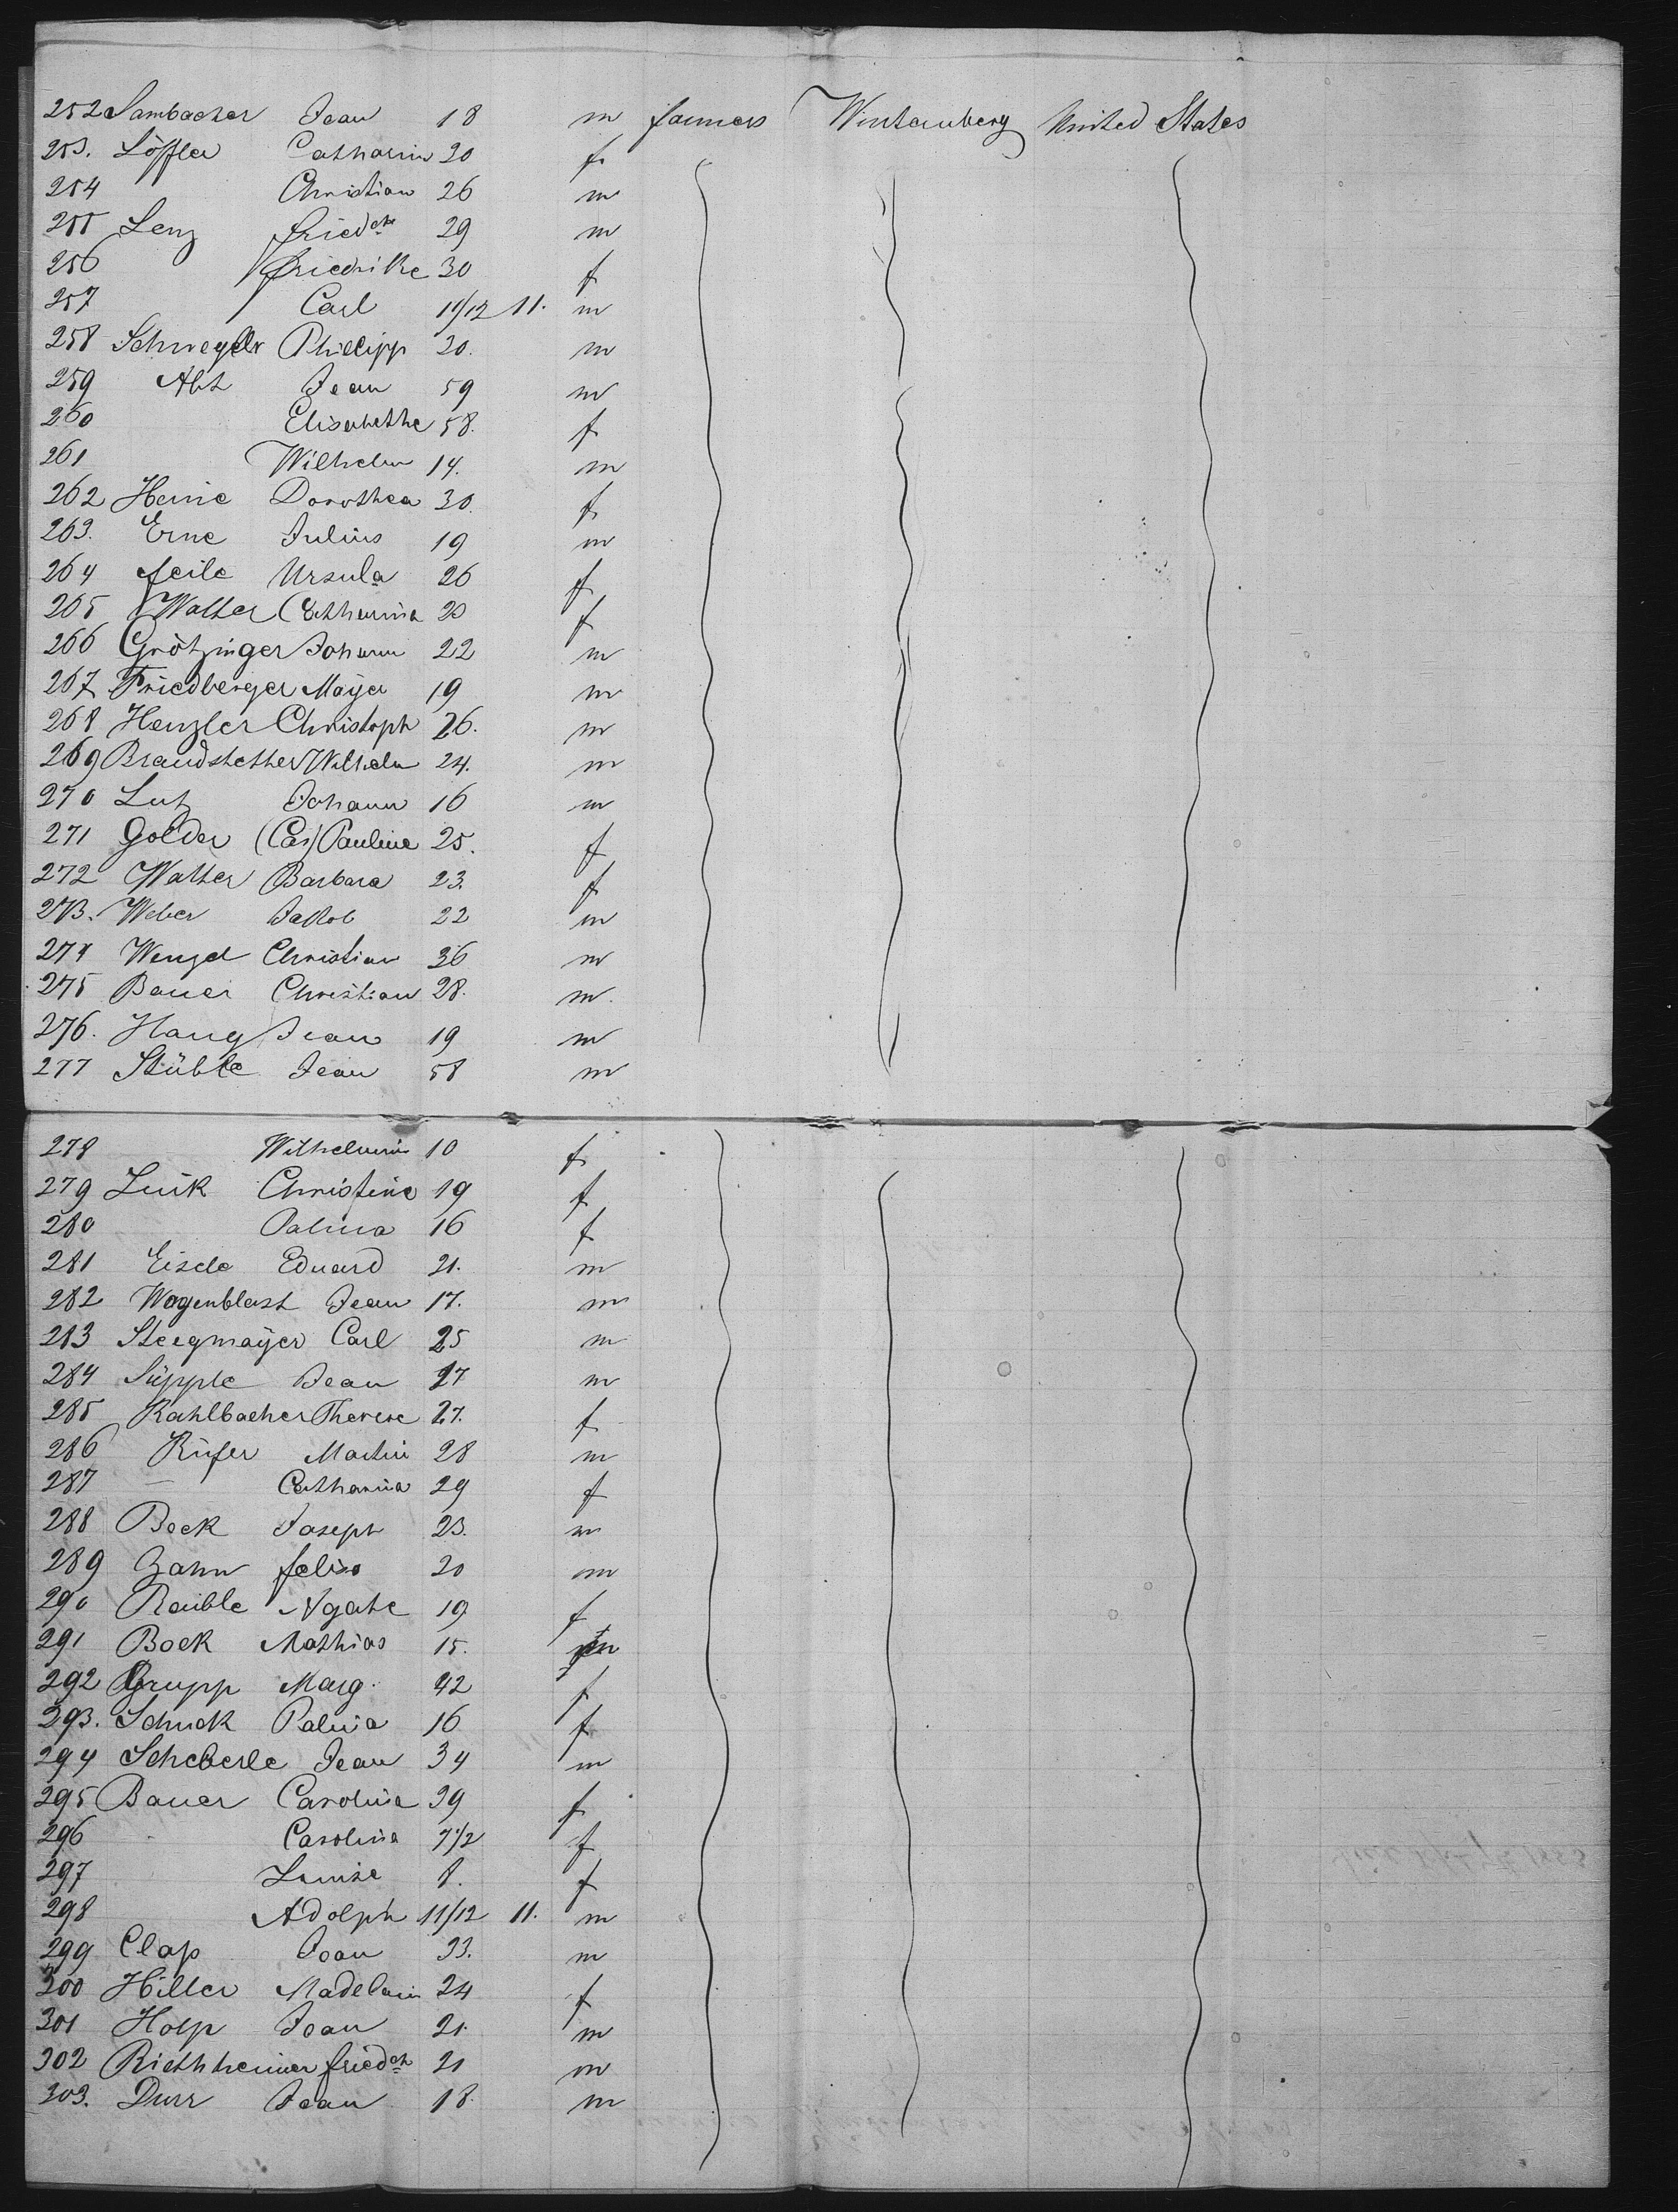 252 Sambacher Jean 18 m farmers Würtemberg United States
253. Löffler Catharina 20 f
254 Christian 26 m
255 Lenz Friedch 29 m
256 Friedrike 30 f
257 Carl 11/12 11. m
258 Schwegler Phillipp 20. m
259 Abt Jean 59 m
260 Elisabethe 58. f
261 Wilhelm 14. m
262 Heinie Dorothea 30. f
263. Erne Julius 19 m
264 Feile Ursula 26 f
265 Walter Catharina 20 f
266 Grötzinger Johann 22 m
267 Friedberger Mayer 19 m
268 Henzler Christoph 26. m
269 Brandstetter Wilhelm 24. m
270 Lutz Johann 16 m
271 Golder (Cas) Pauline 25. f
272 Walter Barbara 23. f
273. Weber Jakob 22 m
274 Wenzel Christian 36 m
275 Bauer Christian 28. m
276. Haug Jean 19 m
277 Stüble Jean 58 m
278 Wilhelmin 10 f
279 Luik Christine 19 f
280 Palina 16 f
281 Eisele Eduard 21. m
282 Wagenblast Jean 17. m
283 Steegmayer Carl 25 m
284 Süpple Jean 27 m
285 Kahlbacher Therese 27. f
286 Küfer Martin 28 m
287 — Catharina 29 f
288 Beck Joseph 23. m
289 Zahn Felix 20 m
290 Raible Agate 19 f
291 Bock Mathias 15. m
292 Grupp Marg. 42 f
293. Schuck Palina 16 f
294 Scheberle Jean 34 m
295 Bauer Carolina 39 f
296 Carolina 7 1/2 f
297 Louise 8. f
298 Adolph 11/12 11. m
299 Clap Jean 33. m
300 Hiller Madelain 24 f
301 Holp Jean 21. m
302 Riethheimer Friedch 21 m
303. Durr Jean 18. m